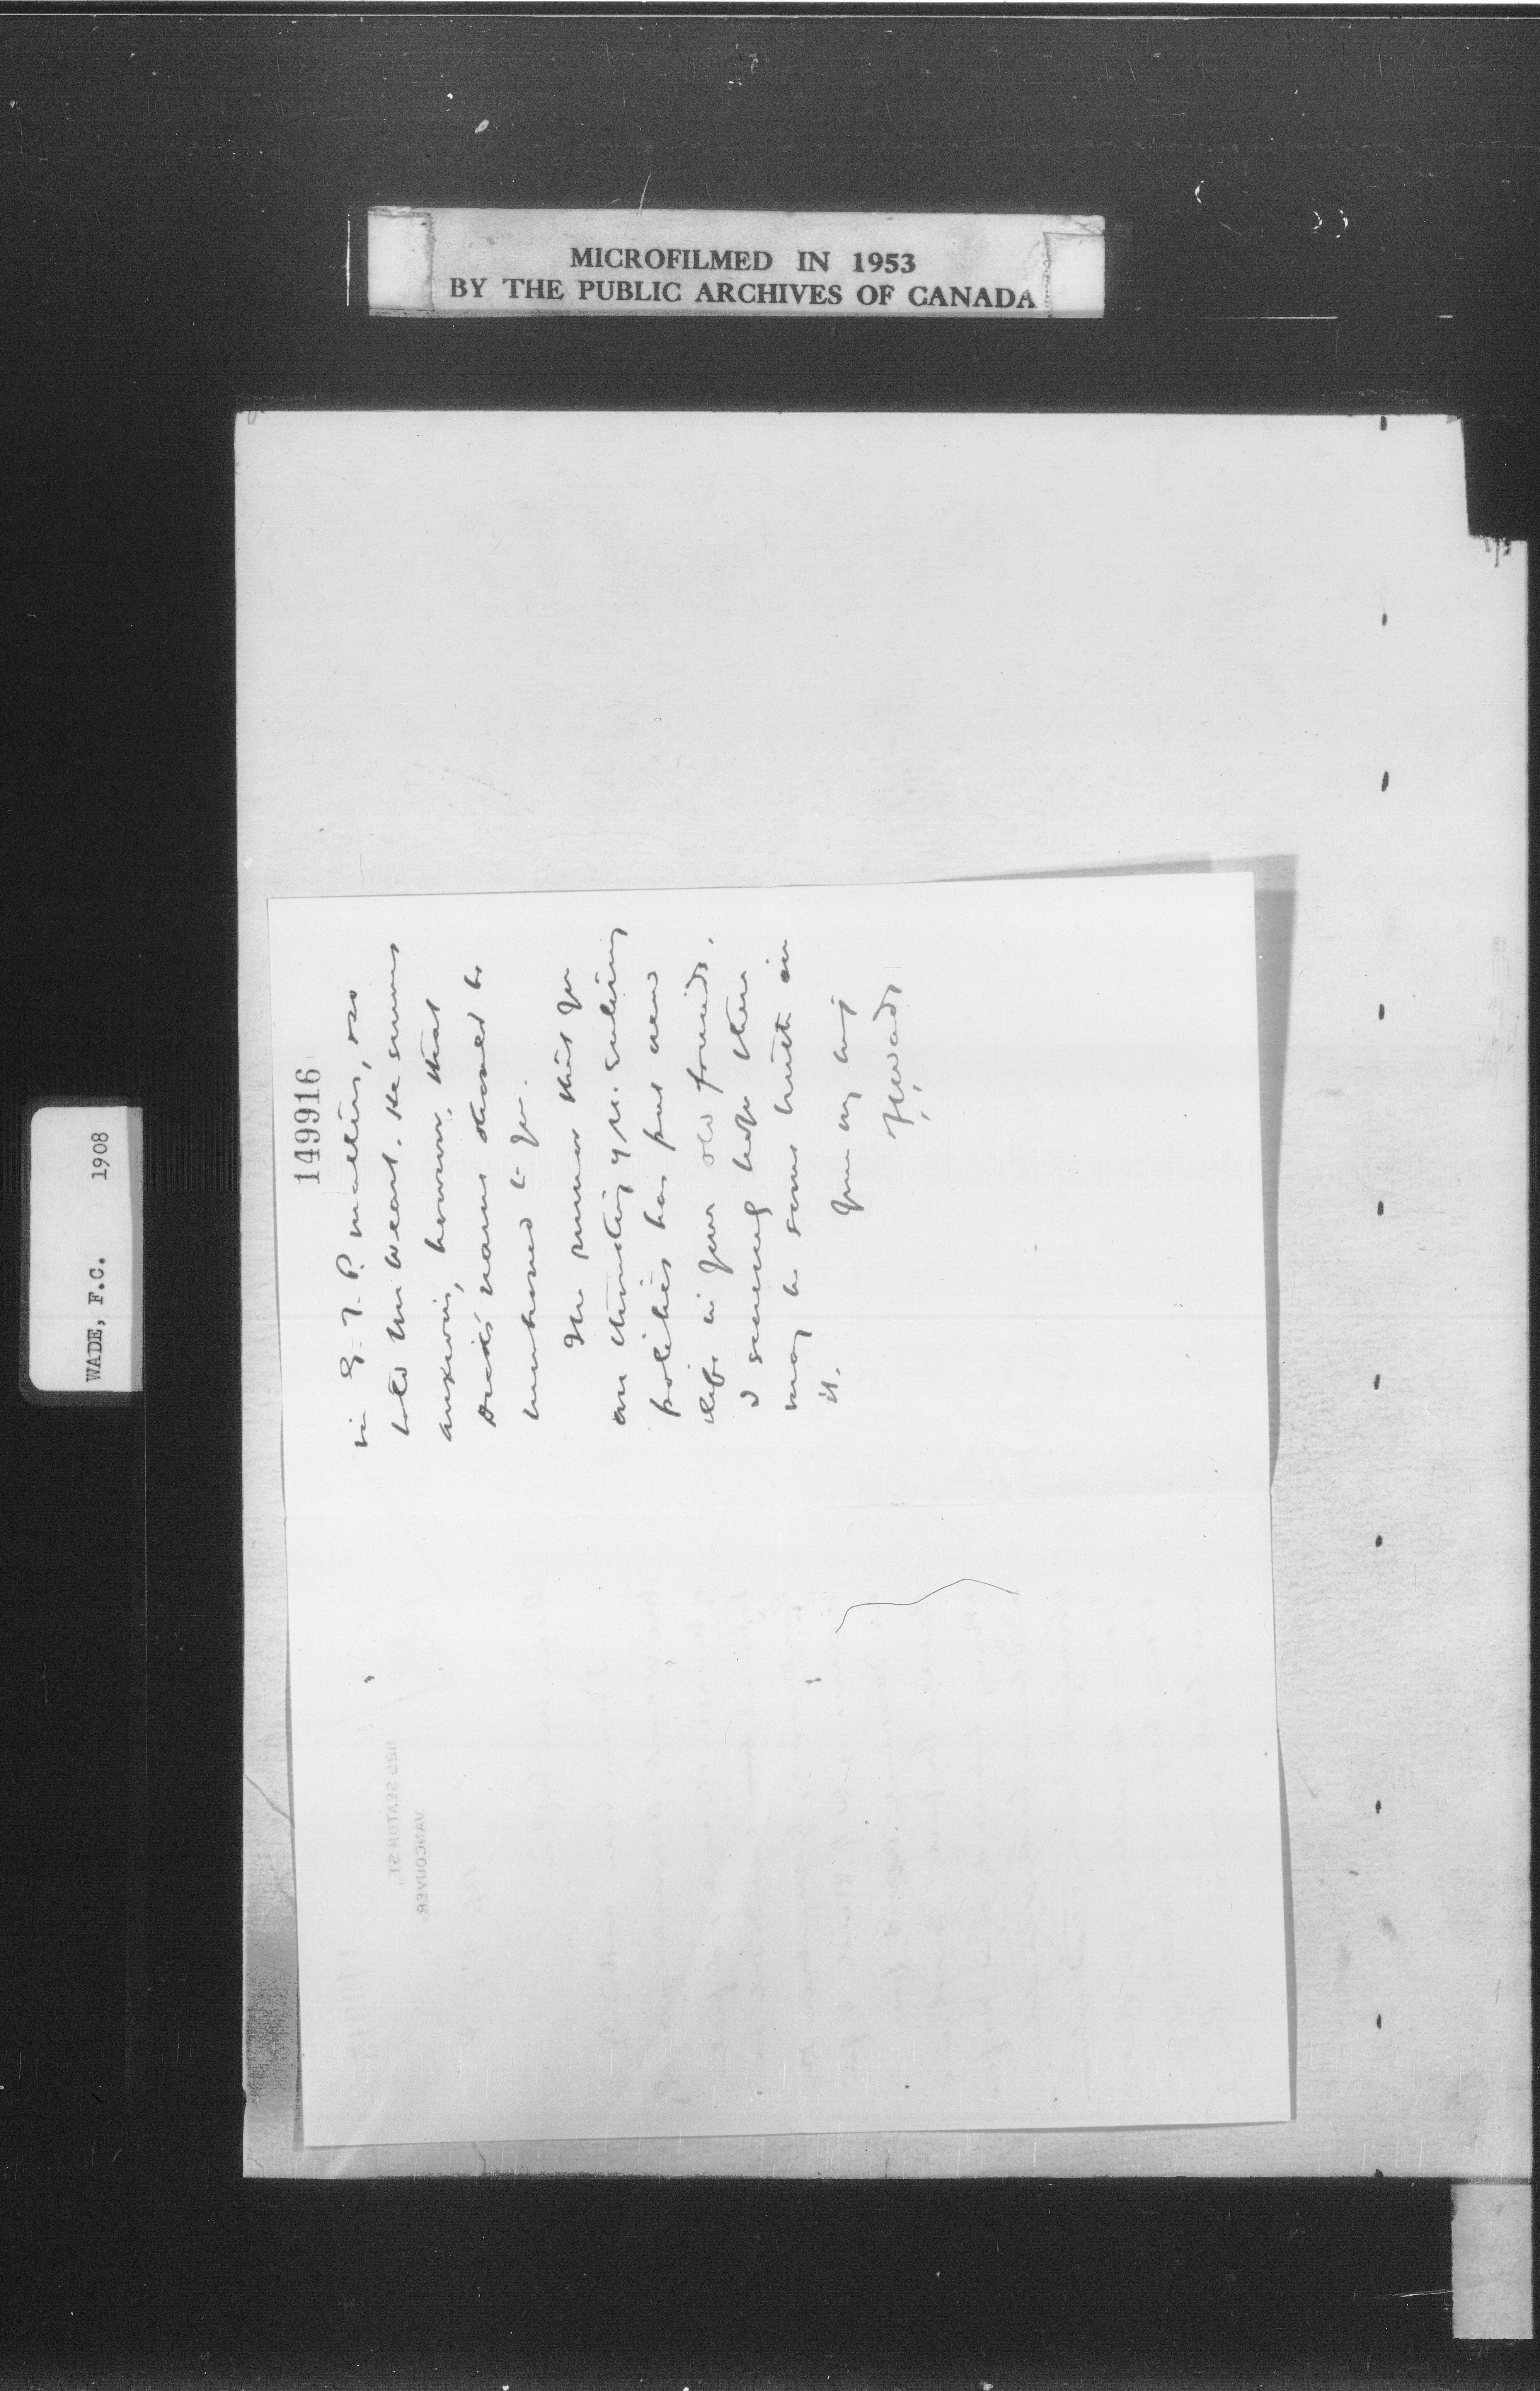 MICROFILMED IN 1953
BY THE PUBLIC ARCHIVES OF CANADA
WADE, F.C. 1908
149916
in G. T. P. matters, &
told him so. He seems
anxious, however, that
name should be
mentioned to you.
The rumor that you
are thinking of re-entering
politics has put new
life in your old friends.
I sincerely hope there
may be some truth in
it.
Yours very truly
FCWade
1125 SEATON ST.,
VANCOUVER